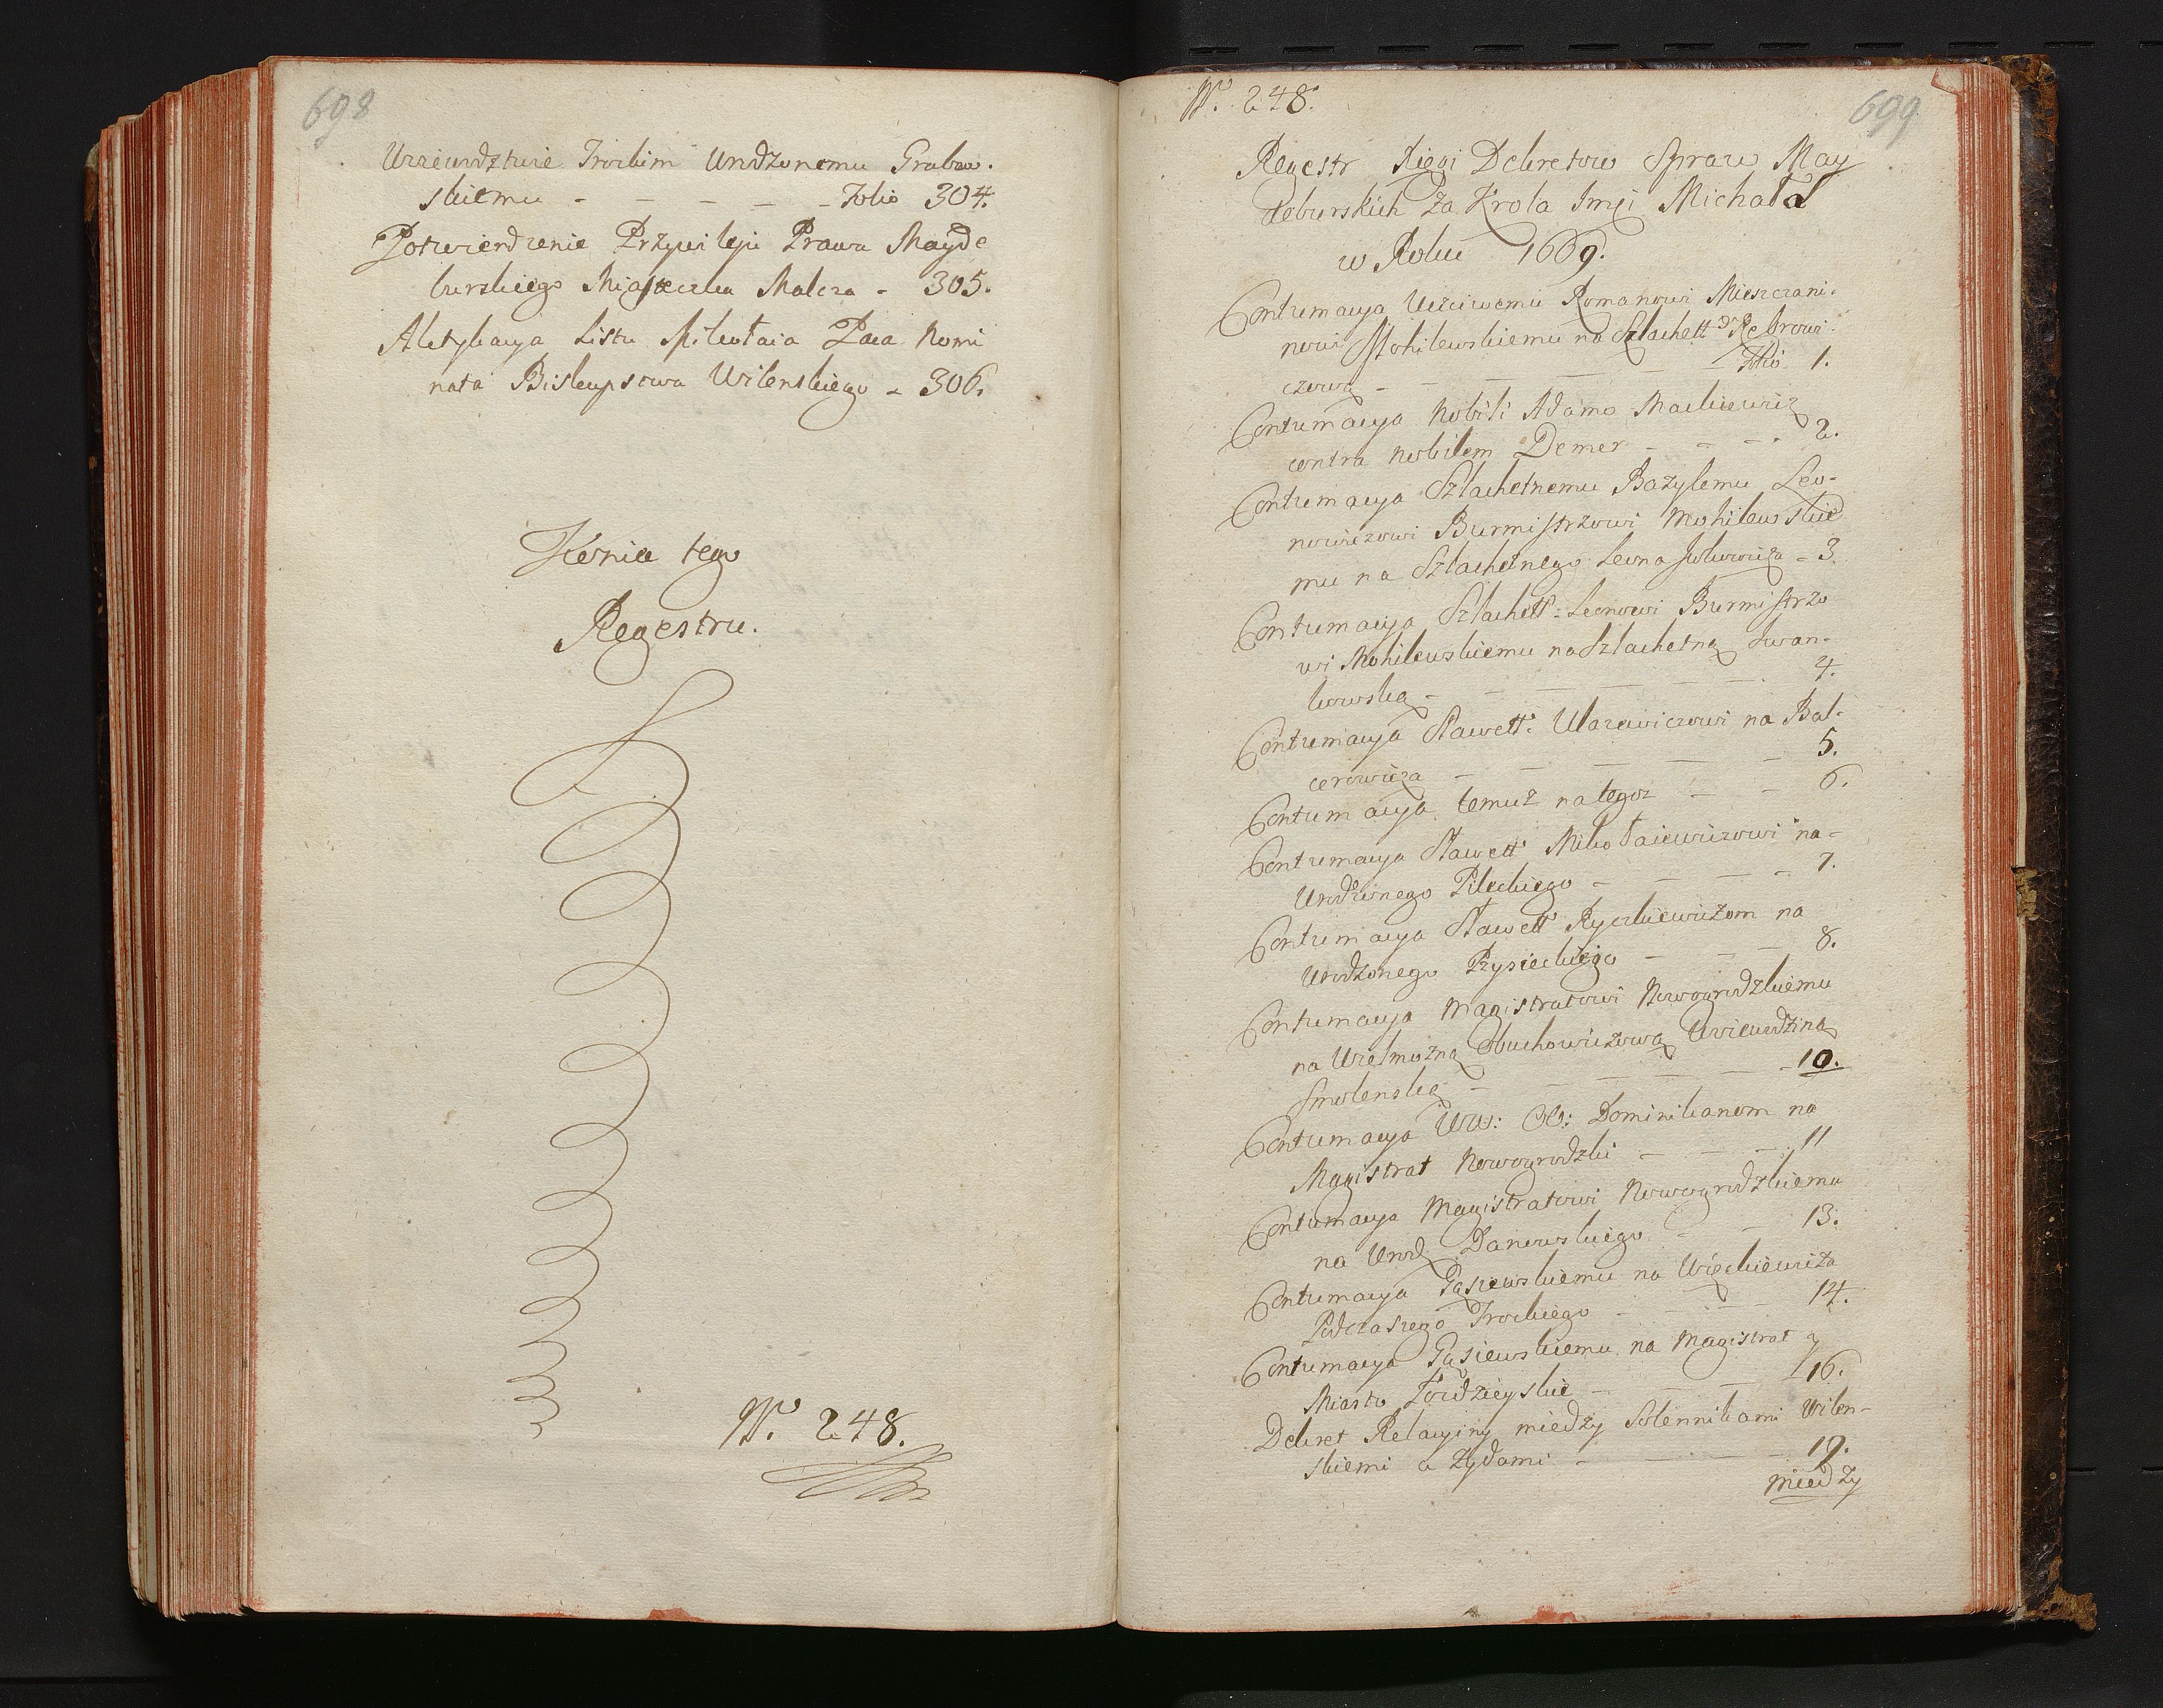 698
Woiewodztwie Trockim Urodzonemu Grabow.
skiemu - - - - - Folio 304.
Potwierdzenie Przywileju Prawa Mayde
burskiego Miasteczku Malcza - 305.
Aktykacya Listu Mikołaia Paca Nomi
nata Biskupstwa Wilenskiego - 306.
Koniec tego
Regestru.
N. 248.
N. 248.
699
Regestr Xięgi Dekretow Spraw May
deburskich Za Krola Jmci Michała
w Roku 1669.
Contumacya Uczciwemu Romanowi Mieszczani-
nowi Mohilewskiemu na Szlachett Rebrowi-
czową - - - - - - Folio 1.
Contumacya Nobili Adamo Mackiewicz
contra Nobilem Demer - - - - 2.
Contumacya Szlachetnemu Bazylemu Leo-
nowiczowi Burmistrzowi Mohilewskie
mu na Szlachetnego Leona - 3.
Contumacya Szlachett: Leonowi Burmistrzo
wi Mohilewskiemu na Szlachetną Iwan-
kowską - - - - - - 4.
Contumacya Sławett: Ularewiczowi na Bal-
cerowicza - - - - - 5.
Contumacya temuż na tegoz - - 6.
Contumacya Sławett Mikołaiewiczowi na-
Urodzonego Pileckiego - - - - 7.
Contumacya Sławett Ryczkiewiczom na
Urodzonego Przysieckiego - - - 8.
Contumacya Magistratowi Nowogrodzkiemu
na Wielmożną Obuchowiczową Woiewodziną
Smolenską - - - - - - 10.
Contumacya WW: OO: Dominikanom na
Magistrat Nowogrodzki - - - 11
Contumacya Magistratowi Nowogrodzkiemu
na Urodz Danowskiego - - 13.
Contumacya Gąsiewskiemu na Więckiewicza
Podczaszego Trockiego - - - - 14.
Contumacya Gąsiewskiemu na Magistrat y
Miasto Łoździeyskie - - - 16.
Dekret Relacyiny między Solennikami Wilen-
skiemi a Zydami - - - - 19.
między